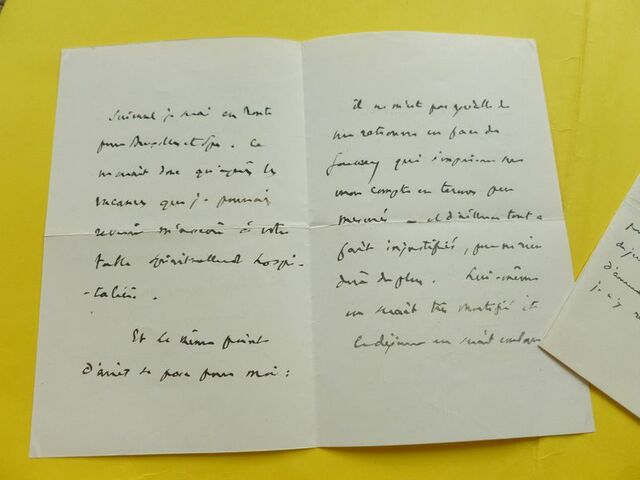 suivant je serai en route
pour Bruxelles et Spa. Ce
ne serait donc qu'après les
vacances que je pourrais
revenir m'asseoir à votre
table spirituellement hospi-
-talière.
Et le même point
d'arrêt se pose pour moi :
il ne m'est pas possible de
me retrouver en face de
qui s'exprime sur
mon compte en termes peu
mesurés — et d'ailleurs tout à
fait injustifiés, pour ne rien
dire de plus. Lui-même
en serait très mortifié et
le déjeuner en serait